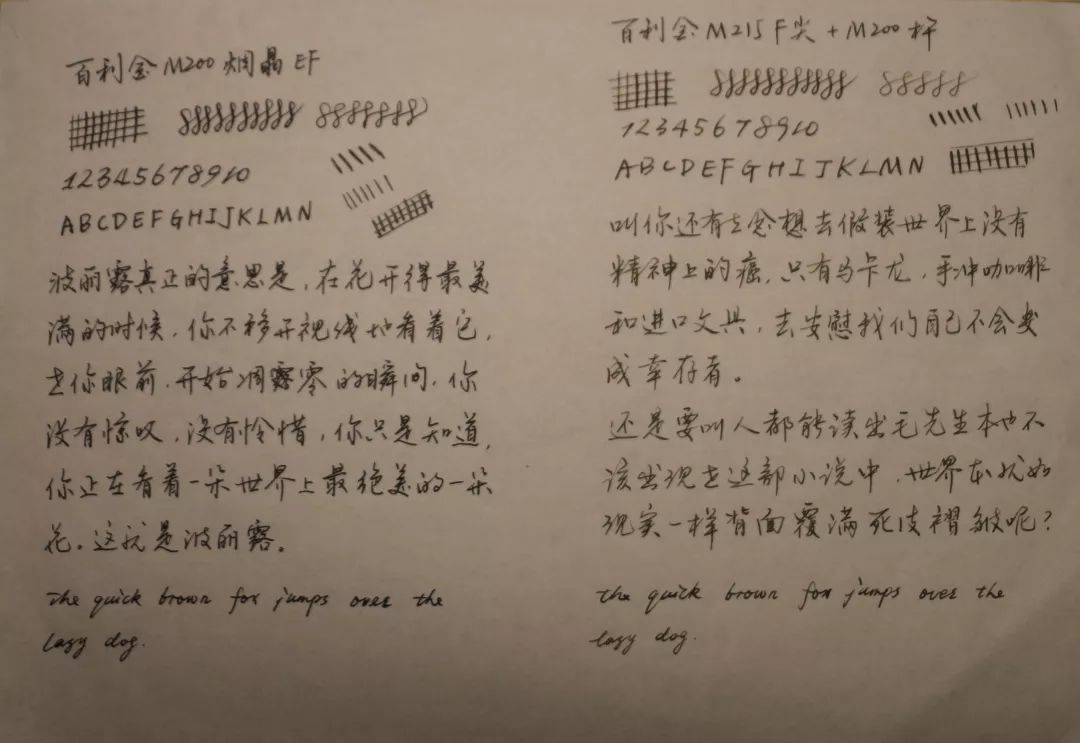 百利金M200烟晶EF
12345678910
ABCDEFGHIJKLMN
波丽露真正的意思是，在花开得最美
满的时候，你不移开视线地看着它，
在你眼前，开始凋零的瞬间，你
没有惊叹，没有怜惜，你只是知道，
你正在看着一朵世界上最绝美的一朵
花。这就是波丽露。
The quick brown fox jumps over the
lazy dog.
百利金M215 F尖+M200杆
12345678910
ABCDEFGHIJKLMN
叫你还有去念想去假装世界上没有
精神上的癌，只有马卡龙，手冲咖啡
和进口文具，去安慰我们自己不会变
成幸存者。
还是要叫人都能读出毛先生本也不
该出现在这部小说中，世界本就如
现实一样背面覆满死皮褶皱呢？
the quick brown fox jumps over the
lazy dog.